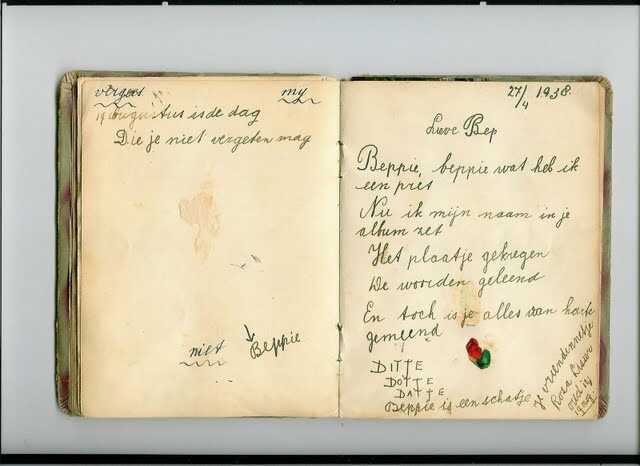 vergeet my
14 Augustus is de dag
Die je niet vergeten mag
niet Beppie
27/4 1938.
Lieve Bep
Beppie, beppie wat heb ik
een pret
Nu ik mijn naam in je
album zet
Het plaatje gekregen
De woorden geleend
En toch is je alles van harte
gemeend
DITTE
DOTTE
DATTE
Beppie is een schatje
je vriendinnetje
Rosa